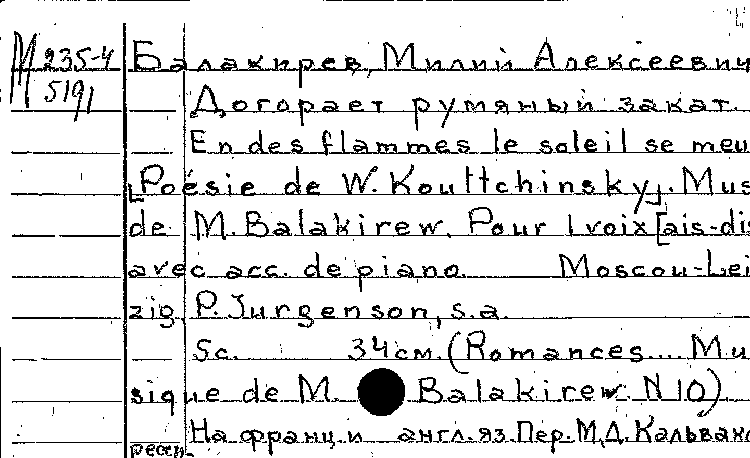 М 235-4
5191
Балакирев, Милий Алексеевич
Догорает румяный закат.
En des flammes le soleil se meu
[Poésie de W. Koultchinsky]. Mus
de M. Balakirew. Pour 1 voix [ais-dis
avec acc. de piano. Moscou-Leip
zig, P. Jurgenson, s.a.
5c. 34см. (Romances... Mu
sique de M. Balakirew. N 10)
На франц. и англ. яз. Пер. М.Д. Кальвако